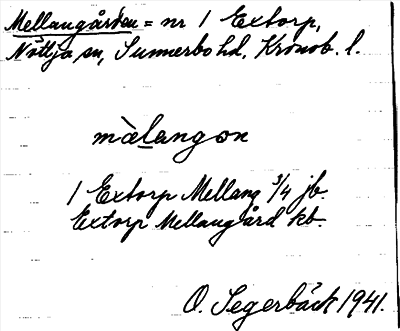 Mellangården = nr 1 Extorp,
Nöttja sn, Sunnerbo hd, Kronob. l.
màlangɷn
1 Extorp Mellang 3/4 jb.
Extorp Mellangård kb.
O. Segerbäck 1941.